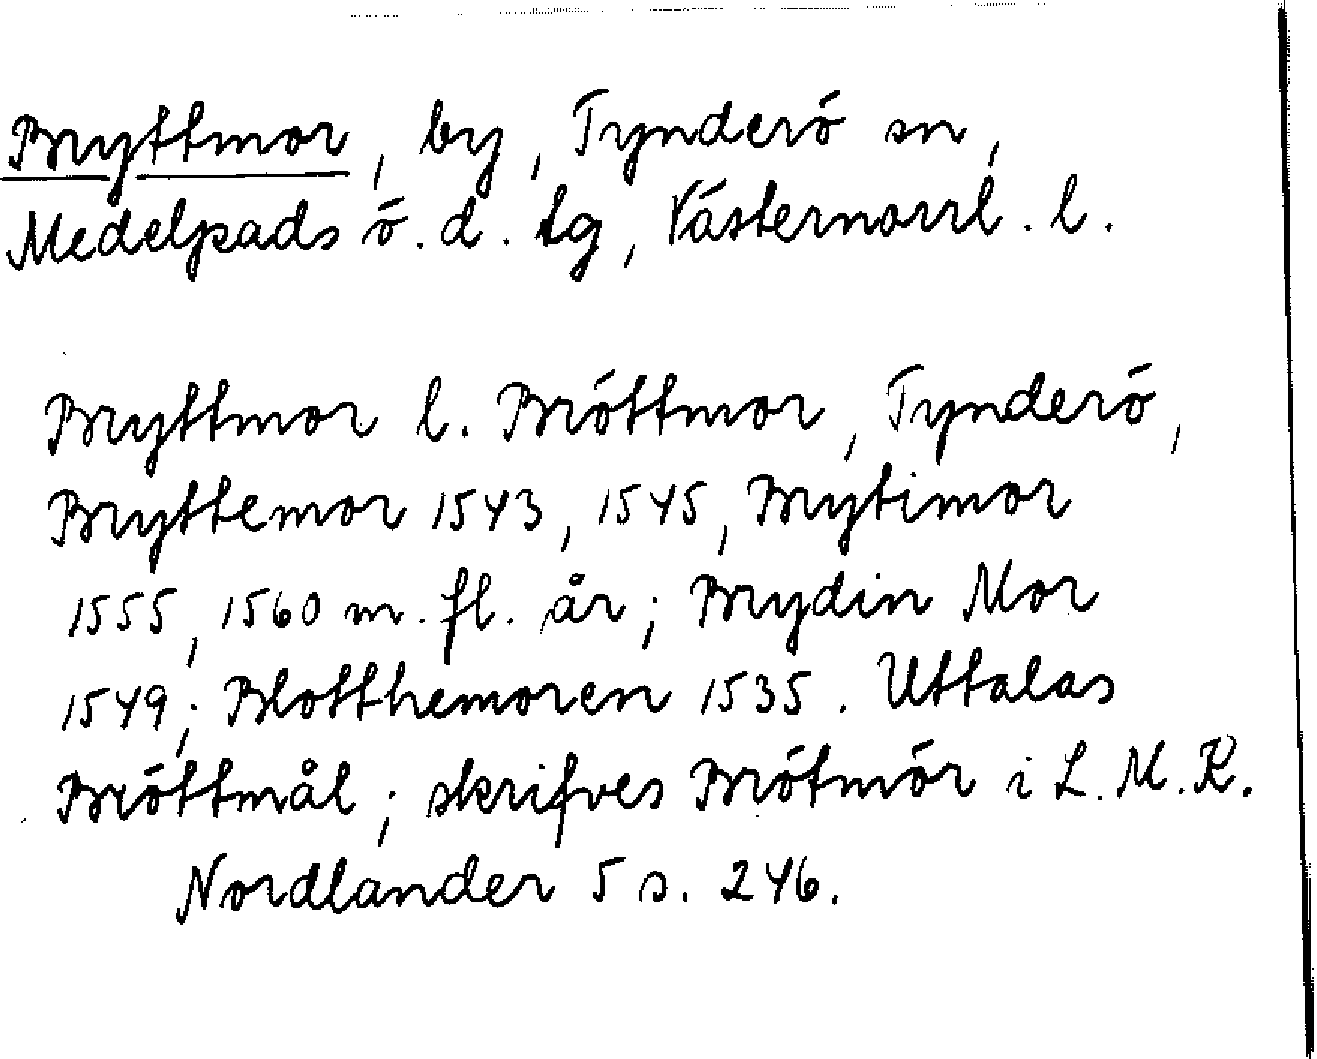 Bryttmor, by, Tynderö sn,
Medelpads ö. d. tg, Västernorrl. l.
Bryttmor l. Bröttmor, Tynderö,
Bryttemor 1543, 1545, Brytimor
1555, 1560 m. fl. år; Brydin Mor
1549; Blotthemoren 1535. Uttalas
Bröttmål; skrifves Brötmör i L. M. R.
Nordlander 5 s. 246.